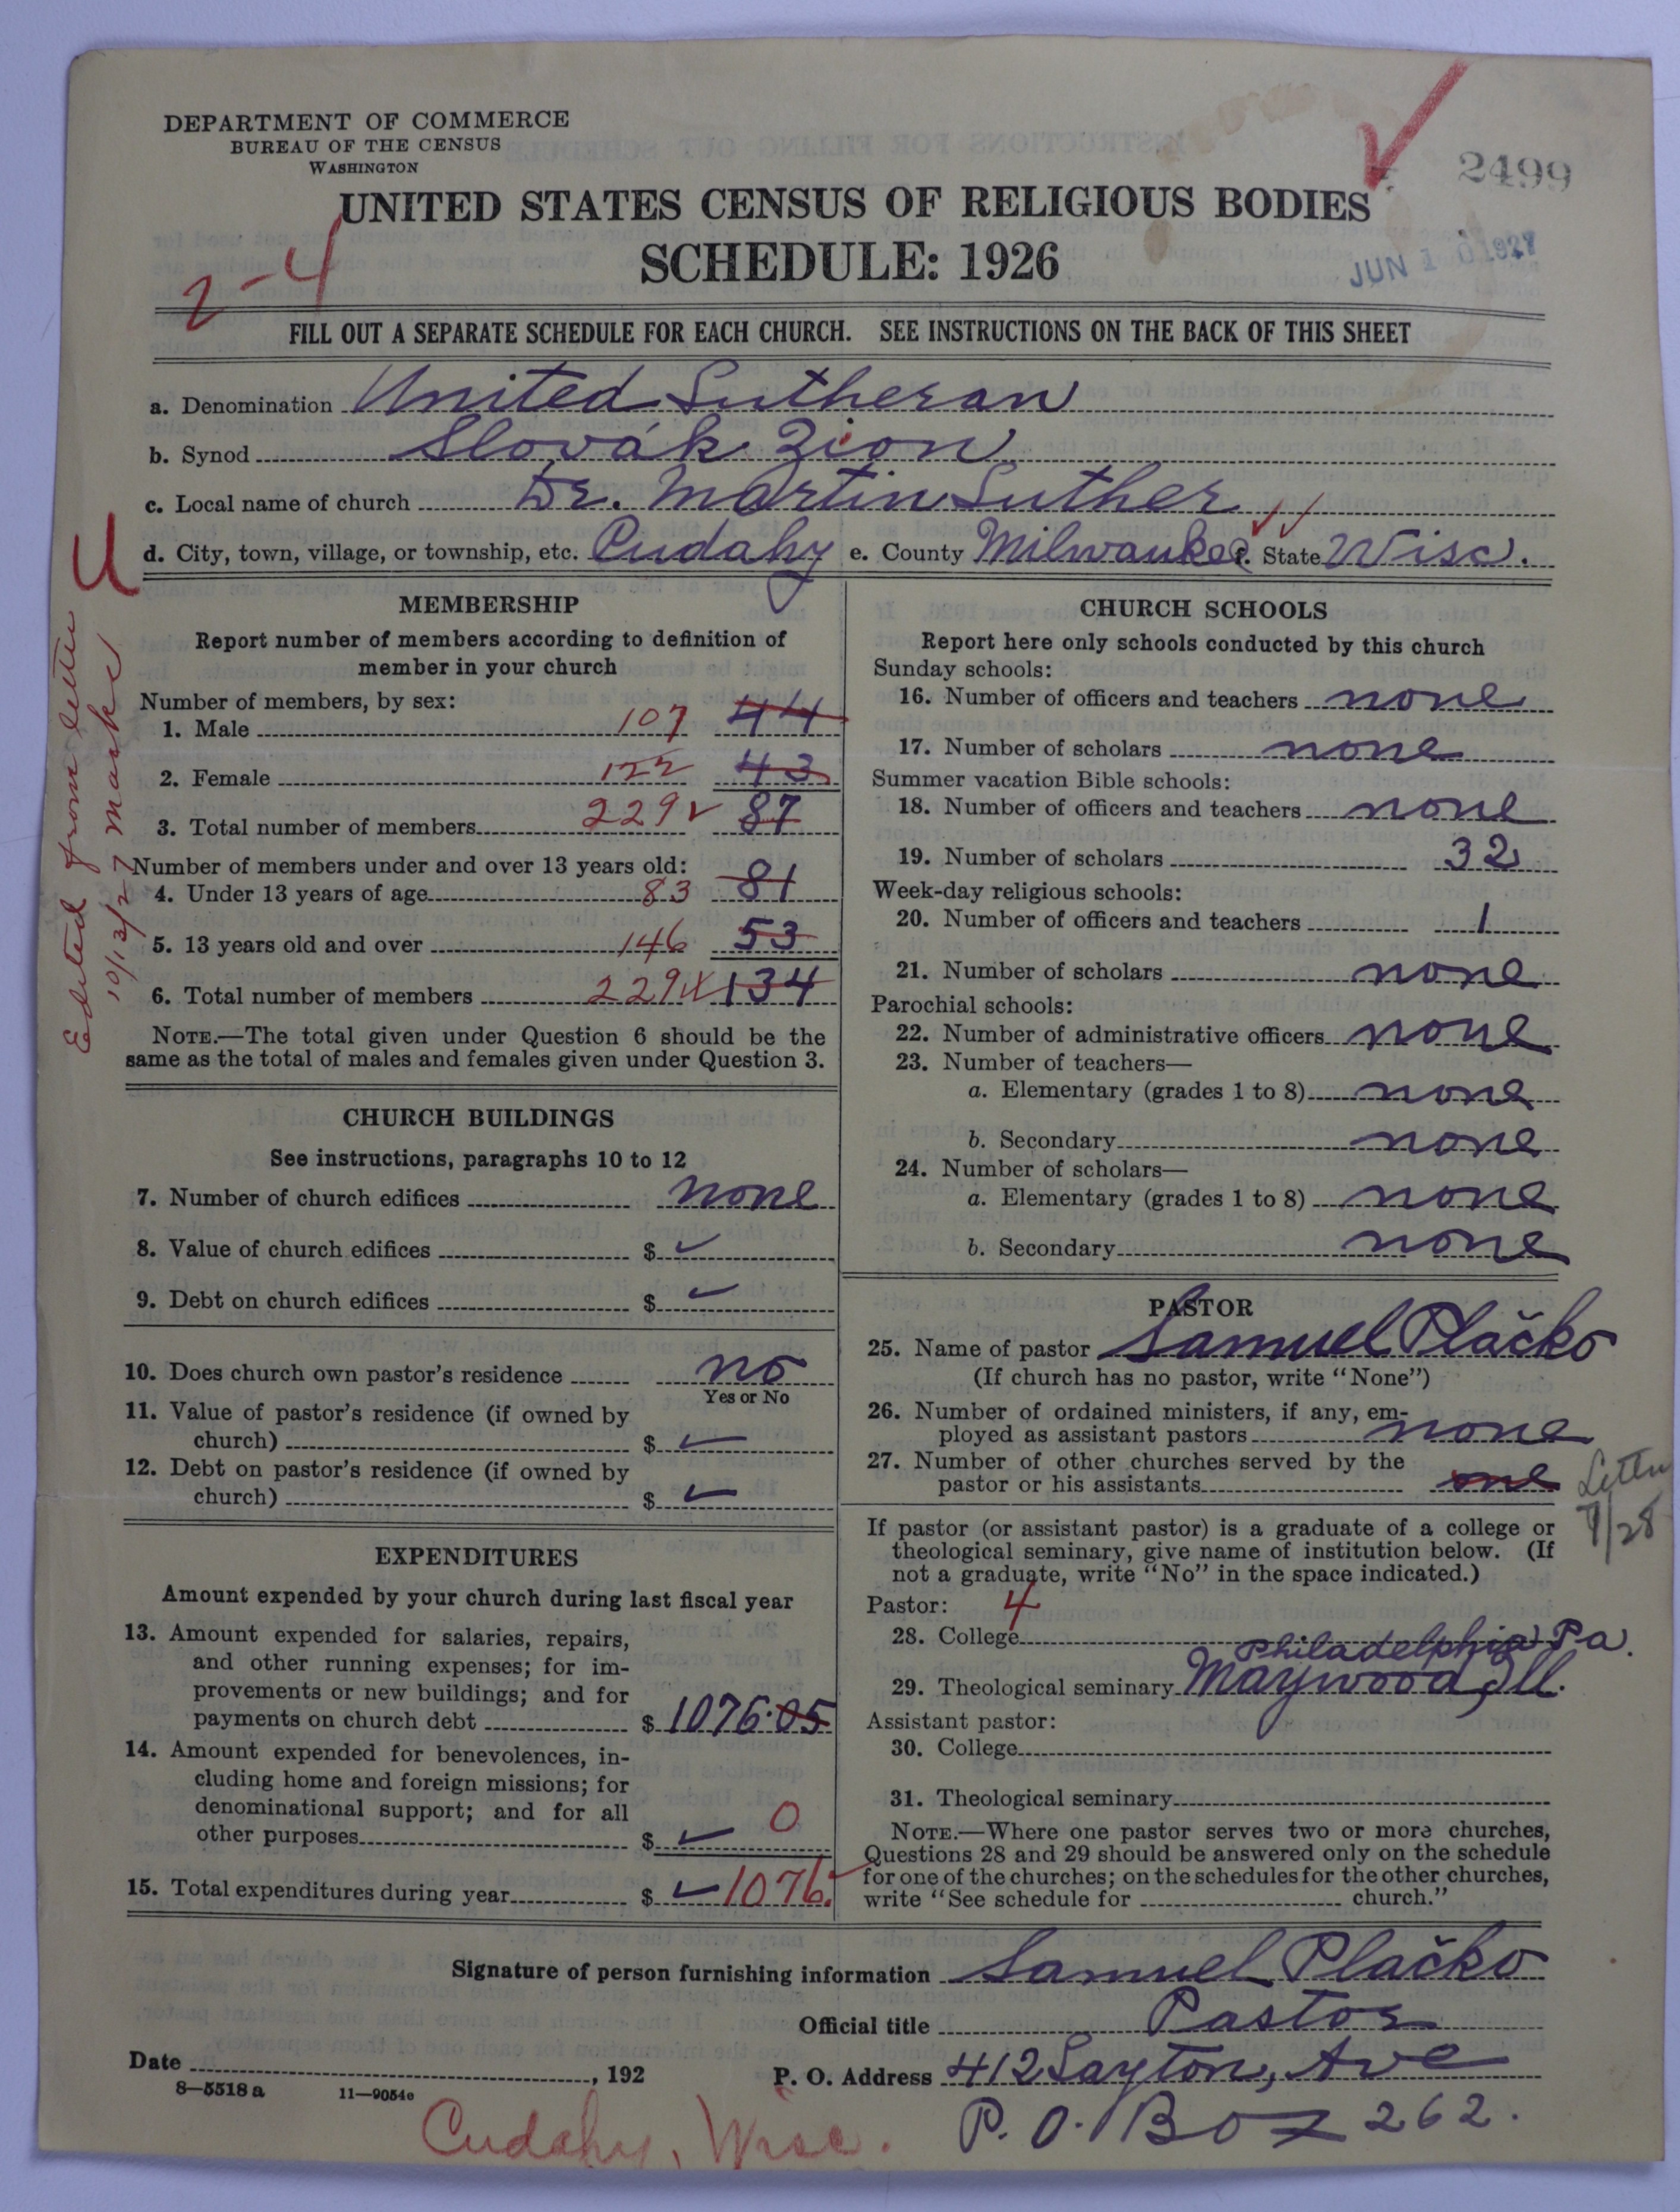 DEPARTMENT OF COMMERCE
BUREAU OF THE CENSUS
WASHINGTON
2499
UNITED STATES CENSUS OF RELIGIOUS BODIES
SCHEDULE: 1926
JUN 10 1927
2-4
FILL OUT A SEPARATE SCHEDULE FOR EACH CHURCH. SEE INSTRUCTIONS ON THE BACK OF THIS SHEET
a. Denomination United Lutheran
b. Synod Slovák Zion
c. Local name of church Dr. Martin Luther
d. City, town, village, or township, etc. Cudahy e. County Milwaukee f. State Wisc.
U
Edited from letter
10/13/27 Marks
MEMBERSHIP
Report number of members according to definition of
member in your church
Number of members, by sex:
1. Male 107 44
2. Female 122 43
3. Total number of members 229 87
Number of members under and over 13 years old:
4. Under 13 years of age 83 81
5. 13 years old and over 146 53
6. Total number of members 229 134
NOTE.—The total given under Question 6 should be the
same as the total of males and females given under Question 3.
CHURCH BUILDINGS
See instructions, paragraphs 10 to 12
7. Number of church edifices none
8. Value of church edifices $
9. Debt on church edifices $
10. Does church own pastor's residence no
Yes or No
11. Value of pastor's residence (if owned by
church) $
12. Debt on pastor's residence (if owned by
church) $
EXPENDITURES
Amount expended by your church during last fiscal year
13. Amount expended for salaries, repairs,
and other running expenses; for im-
provements or new buildings; and for
payments on church debt $ 1076.05
14. Amount expended for benevolences, in-
cluding home and foreign missions; for
denominational support; and for all
other purposes $ 0
15. Total expenditures during year $ 1076.
CHURCH SCHOOLS
Report here only schools conducted by this church
Sunday schools:
16. Number of officers and teachers none
17. Number of scholars none
Summer vacation Bible schools:
18. Number of officers and teachers none
19. Number of scholars 32
Week-day religious schools:
20. Number of officers and teachers 1
21. Number of scholars none
Parochial schools:
22. Number of administrative officers none
23. Number of teachers—
a. Elementary (grades 1 to 8) none
b. Secondary none
24. Number of scholars—
a. Elementary (grades 1 to 8) none
b. Secondary none
PASTOR
25. Name of pastor Samuel Plačko
(If church has no pastor, write "None")
26. Number of ordained ministers, if any, em-
ployed as assistant pastors none
27. Number of other churches served by the
pastor or his assistants one
Letter
9/28
If pastor (or assistant pastor) is a graduate of a college or
theological seminary, give name of institution below. (If
not a graduate, write "No" in the space indicated.)
Pastor: 4
28. College
Philadelphia Pa.
29. Theological seminary Maywood, Ill.
Assistant pastor:
30. College
31. Theological seminary
NOTE.—Where one pastor serves two or more churches,
Questions 28 and 29 should be answered only on the schedule
for one of the churches; on the schedules for the other churches,
write "See schedule for church."
Signature of person furnishing information Samuel Plačko
Official title Pastor
Date , 192 P. O. Address 412 Layton, Ave
8—5518 a 11—9054c
Cudahy, Wisc. P. O. Box 262.